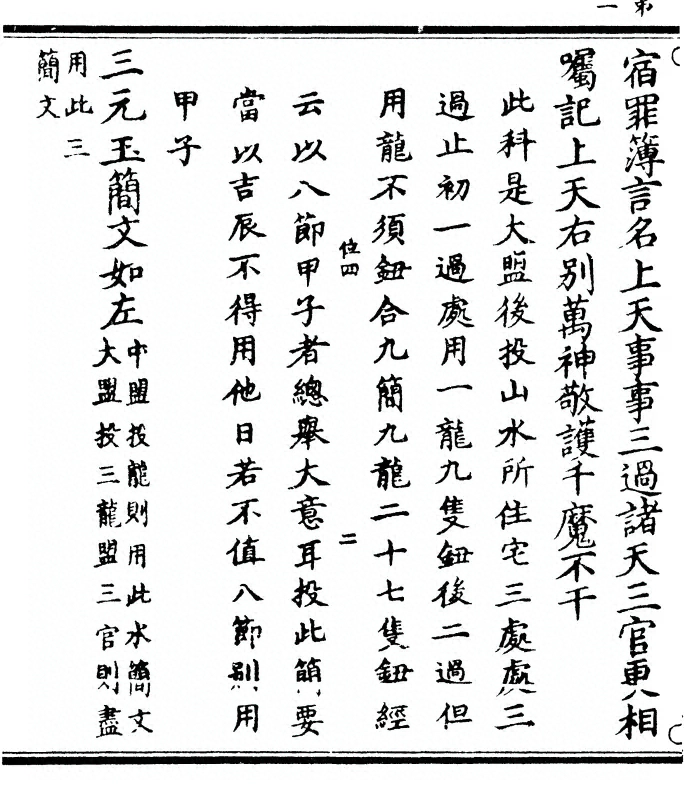 第一
宿罪簿言名上天事事三過諸天三官更相
囑記上天右別萬神敬護千魔不干
此科是大盟後投山水所住宅三處處三
過止初一過處用一龍九隻鈕後二過但
用龍不須鈕合九簡九龍二十七隻鈕經
位四 二
云以八節甲子者總舉大意耳投此簡要
當以吉辰不得用他日若不值八節別用
甲子
三元玉簡文如左
中盟投龍則用此水簡文
大盟投三龍盟三官則盡
用此三
簡文